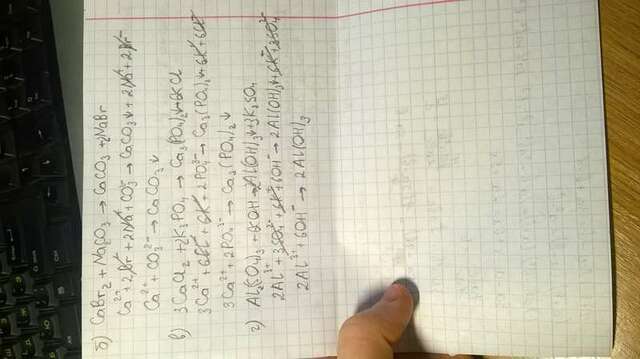 б) CaBr₂ + Na₂CO₃ → CaCO₃ + 2NaBr
Ca²⁺ + 2Br⁻ + 2Na⁺ + CO₃²⁻ → CaCO₃↓ + 2Na⁺ + 2Br⁻
Ca²⁺ + CO₃²⁻ → CaCO₃↓
в) 3CaCl₂ + 2K₃PO₄ → Ca₃(PO₄)₂↓ + 6KCl
3Ca²⁺ + 6Cl⁻ + 6K⁺ + 2PO₄³⁻ → Ca₃(PO₄)₂↓ + 6K⁺ + 6Cl⁻
3Ca²⁺ + 2PO₄³⁻ → Ca₃(PO₄)₂↓
г) Al₂(SO₄)₃ + 6KOH → 2Al(OH)₃↓ + 3K₂SO₄
2Al³⁺ + 3SO₄²⁻ + 6K⁺ + 6OH⁻ → 2Al(OH)₃↓ + 6K⁺ + 3SO₄²⁻
2Al³⁺ + 6OH⁻ → 2Al(OH)₃